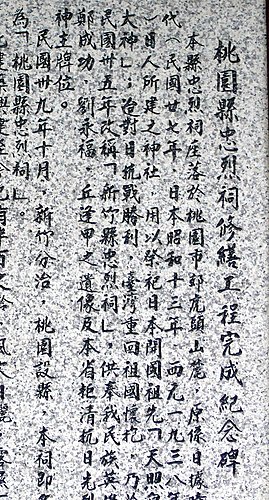 桃園縣忠烈祠修繕工程完成紀念碑
本縣忠烈祠座落於桃園市郊虎頭山麓，原係日據
代（民國廿七年，日本昭和十三年，西元一九三八
）日人所建之神社，用以祭祀日本開國祖先「天照
大神」；治對日抗戰勝利，臺灣重回祖國懷抱，乃
民國卅五年改稱「新竹縣忠烈祠」，供奉我民族英
鄭成功，劉永福，丘逢甲之遺像及本省拒清抗日先
神主牌位。
民國卅九年十月，新竹分治，桃園設縣，本祠即
為「桃園縣忠烈祠」。